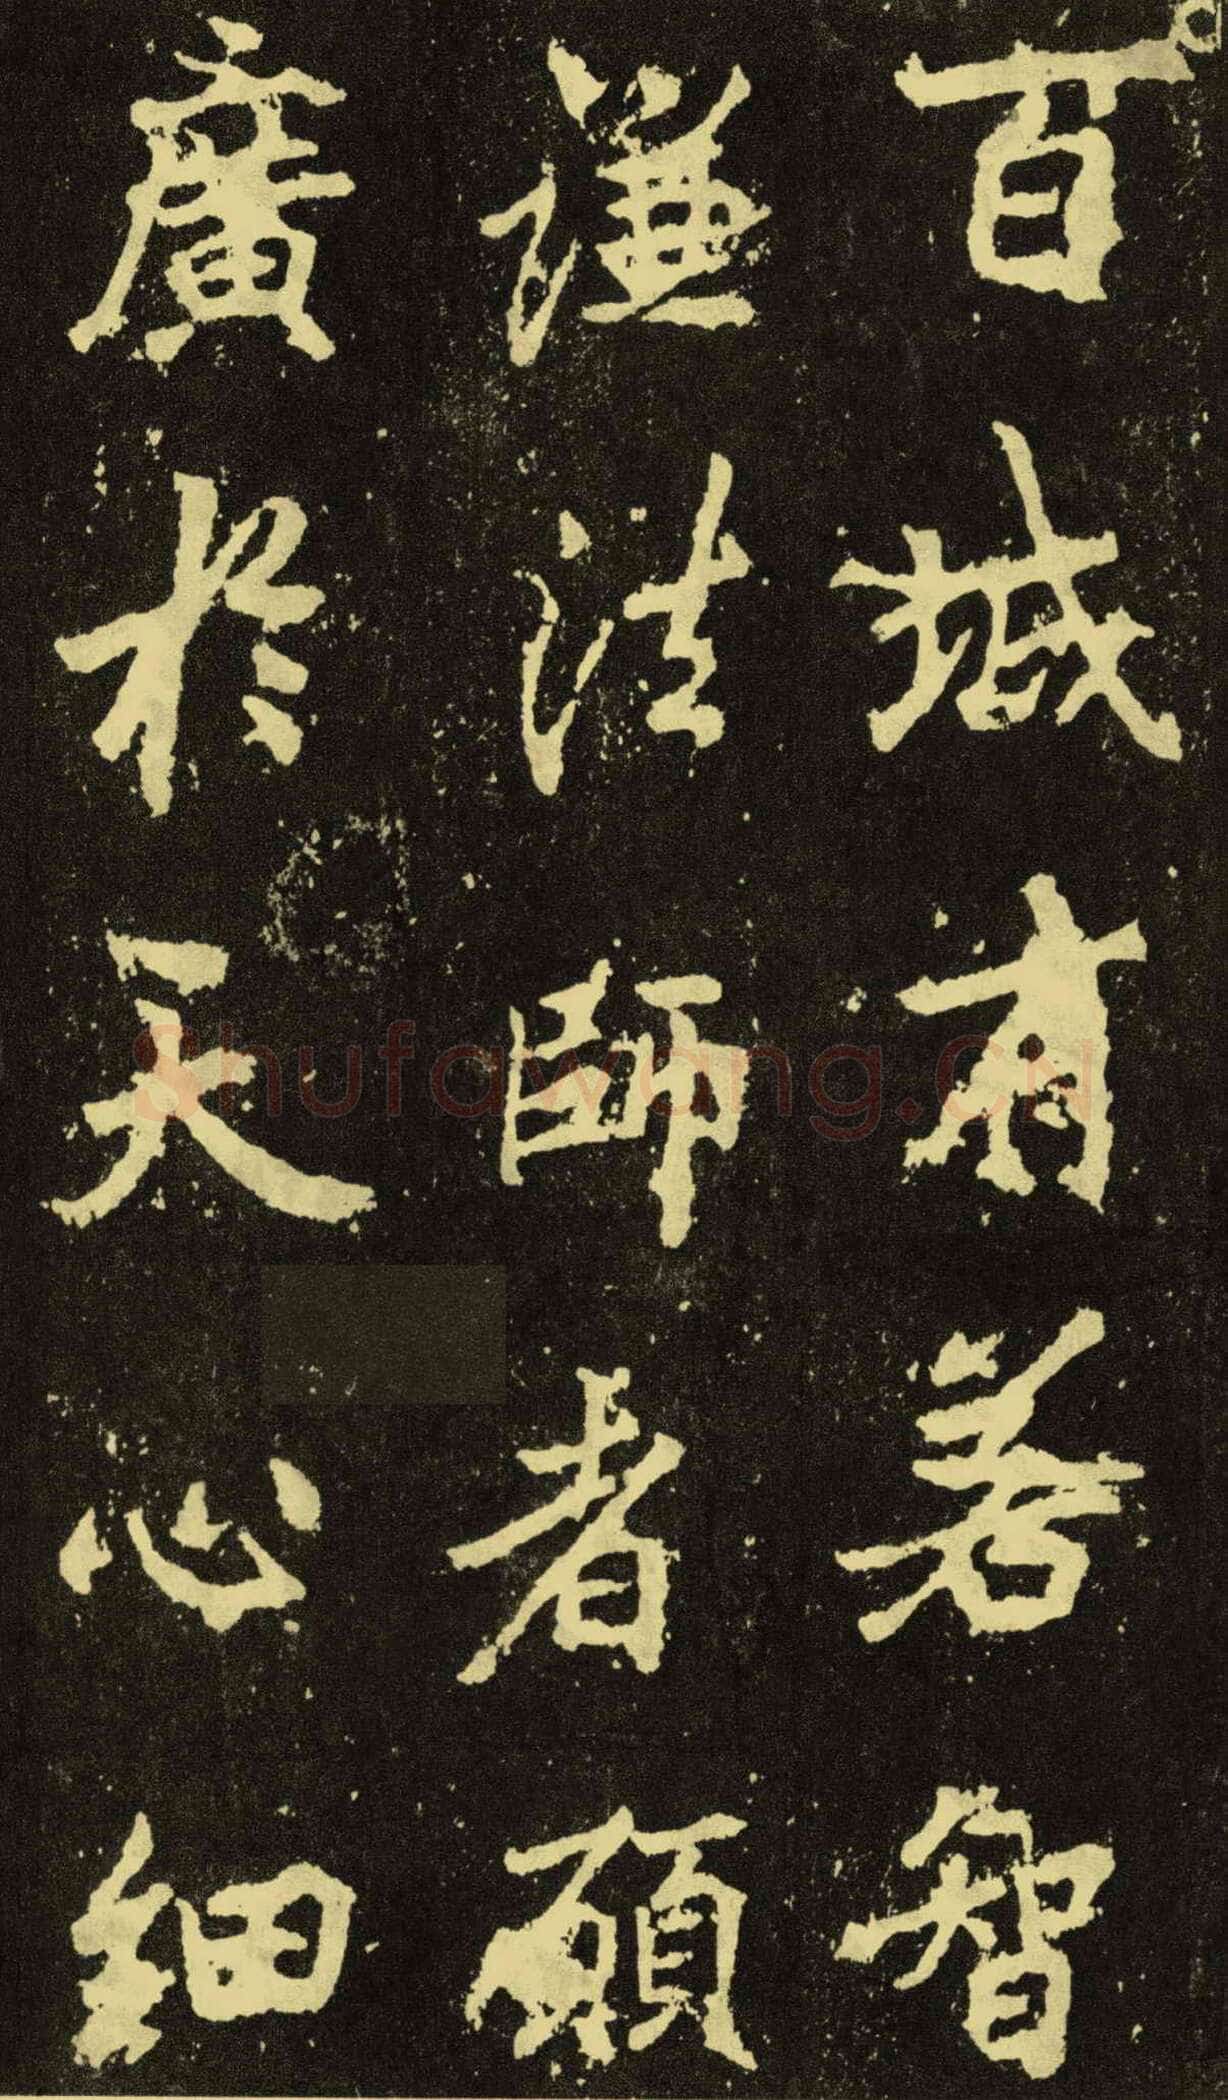 百城有若智
謙法師者願
廣於天心細
Shufawang.CN